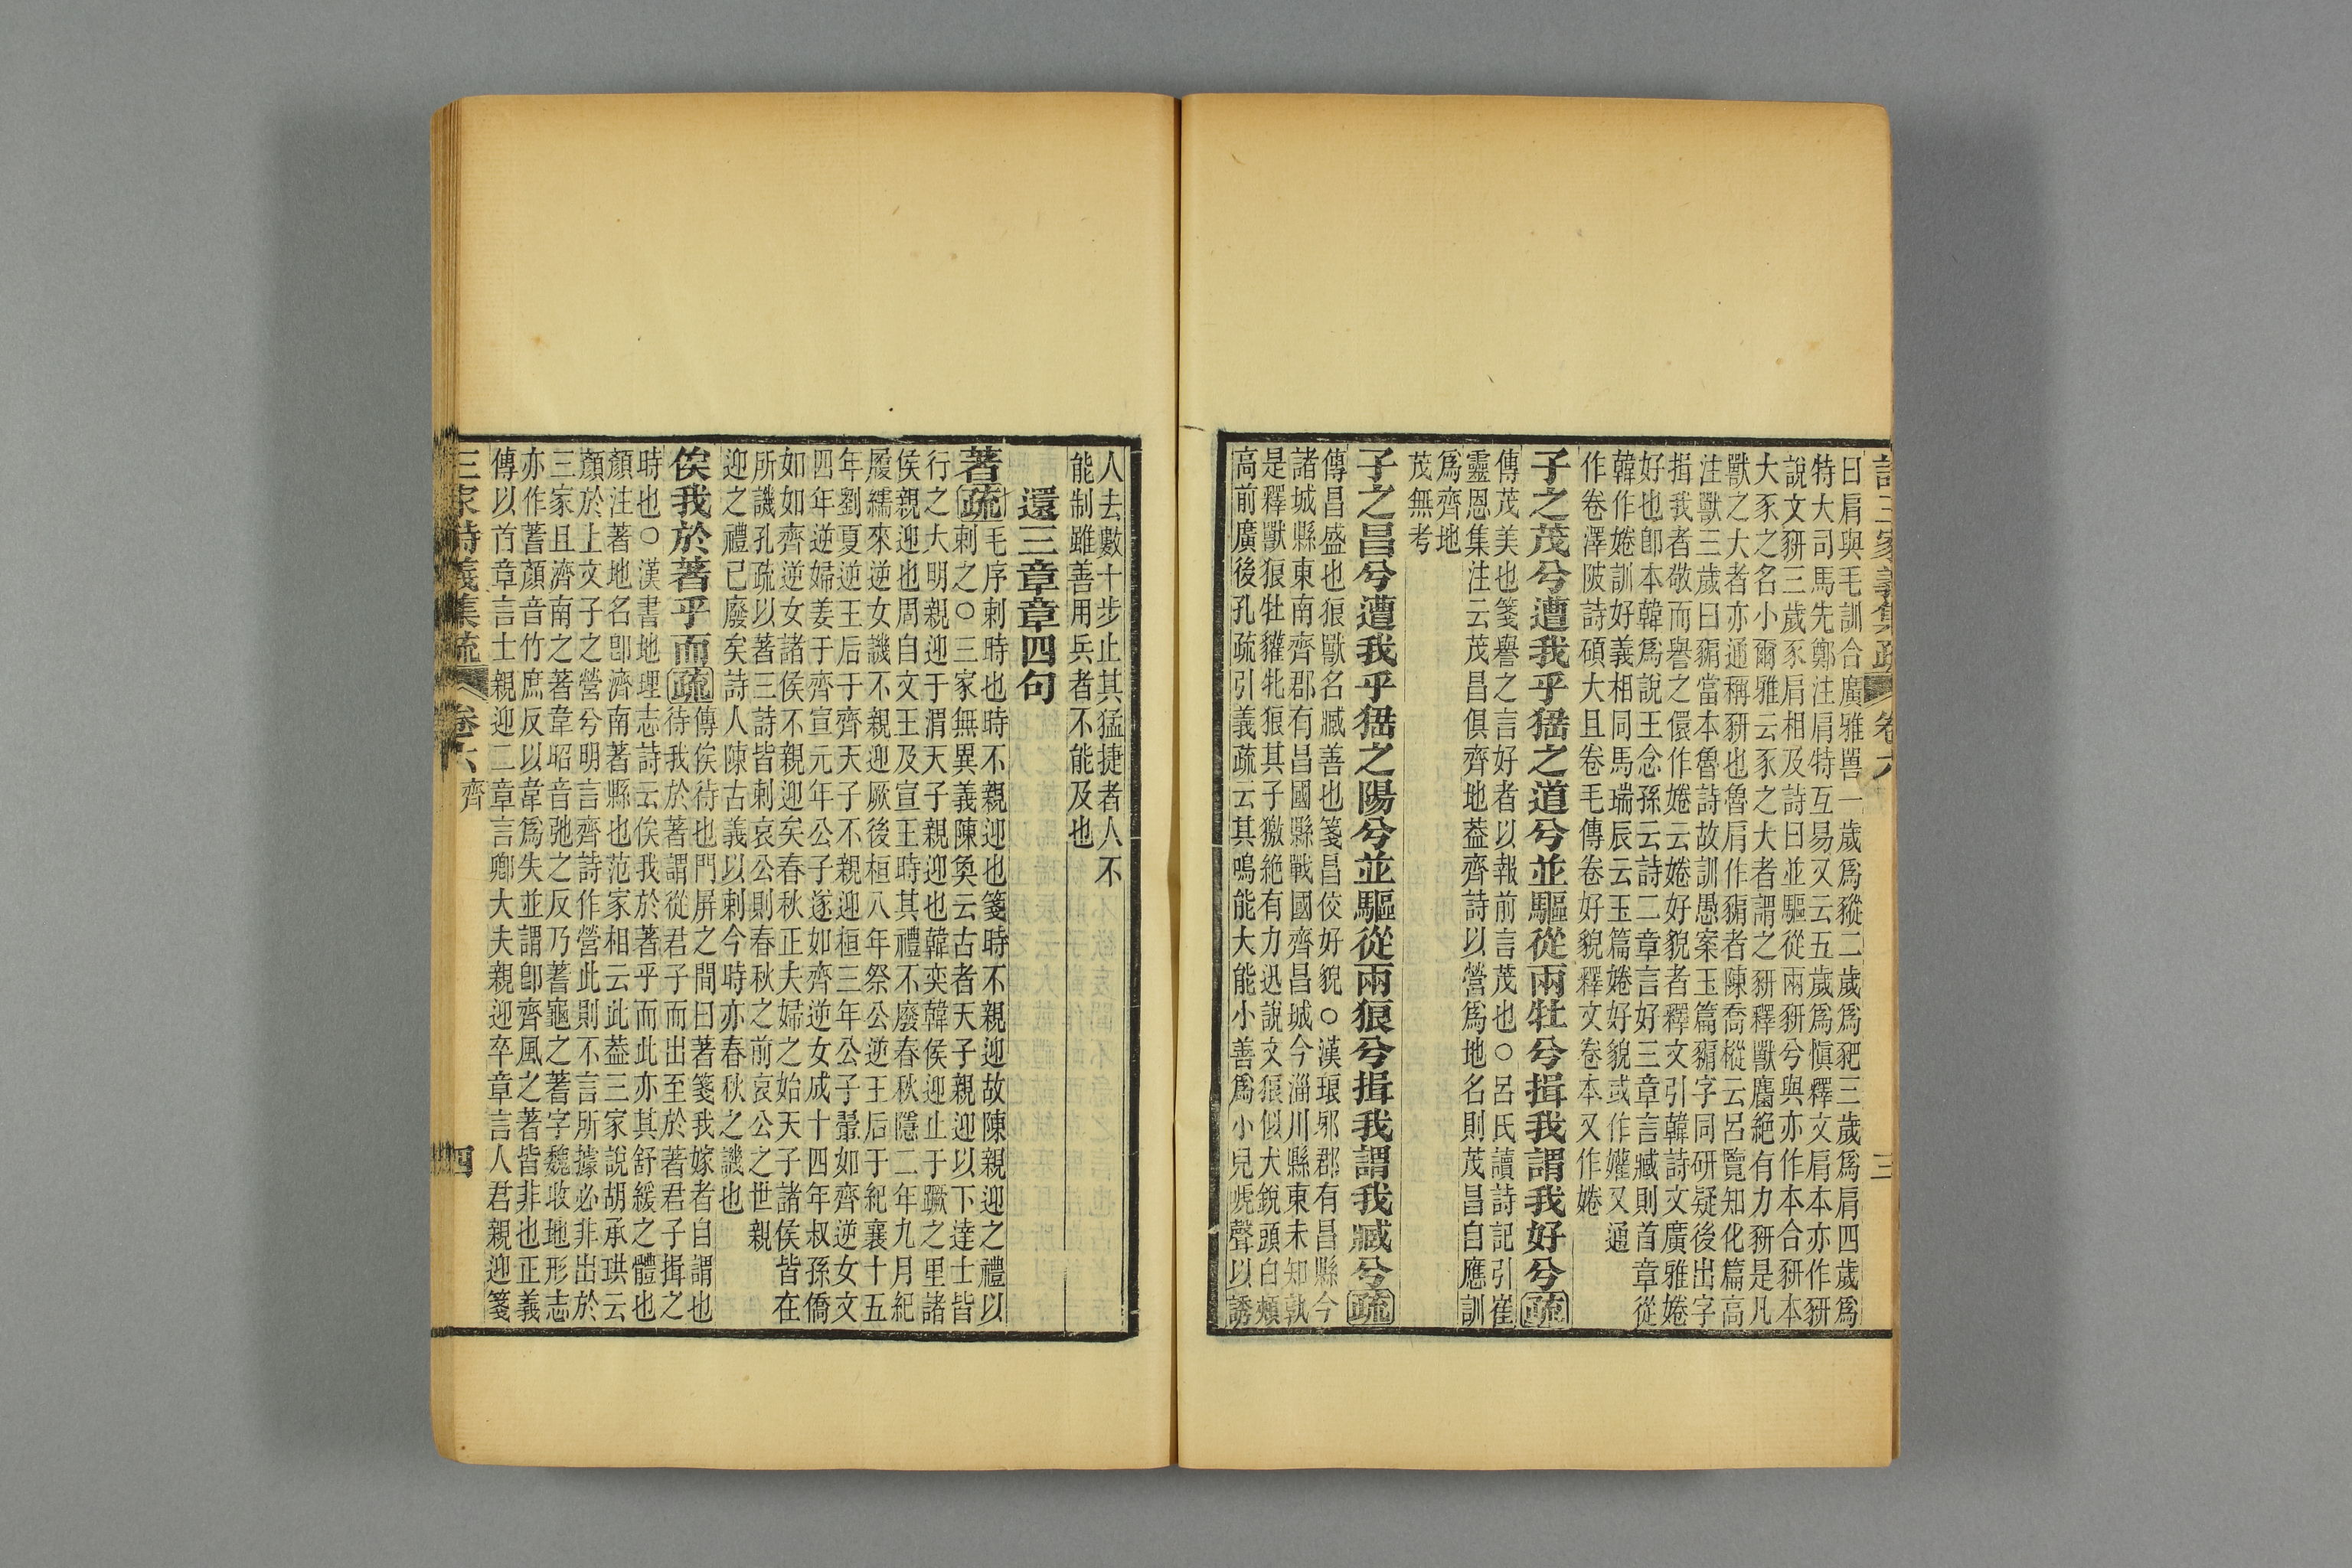 詩三家義集疏 卷六 三
曰肩與毛訓合廣雅獸一歲爲豵二歲爲豝三歲爲肩四歲爲
特大司馬先鄭注肩特互易又云五歲爲愼釋文肩本亦作豜
說文豜三歲豕肩相及詩曰並驅從兩豜兮與亦作本合豜本
大豕之名小爾雅云豕之大者謂之豜釋獸麕絕有力豜是凡
獸之大者亦通稱豜也魯肩作豣者陳喬樅云呂覽知化篇高
注獸三歲曰豣當本魯詩故訓愚案玉篇豣字同研疑後出字
揖我者敬而譽之儇作婘云婘好貌者釋文引韓詩文廣雅婘
好也卽本韓爲說王念孫云詩二章言好三章言臧則首章從
韓作婘訓好義相同馬瑞辰云玉篇婘好貌或作孉又通
作卷澤陂詩碩大且卷毛傳卷好貌釋文卷本又作婘
子之茂兮遭我乎峱之道兮並驅從兩牡兮揖我謂我好兮疏
傳茂美也箋譽之言好者以報前言茂也○呂氏讀詩記引崔
靈恩集注云茂昌俱齊地葢齊詩以營爲地名則茂昌自應訓
爲齊地
茂無考
子之昌兮遭我乎峱之陽兮並驅從兩狼兮揖我謂我臧兮疏
傳昌盛也狼獸名臧善也箋昌佼好貌○漢琅邪郡有昌縣今
諸城縣東南齊郡有昌國縣戰國齊昌城今淄川縣東未知孰
是釋獸狼牡貛牝狼其子獥絕有力迅說文狼似犬銳頭白頰
高前廣後孔疏引義疏云其鳴能大能小善爲小兒嗁聲以誘
人去數十步止其猛捷者人不
能制雖善用兵者不能及也
還三章章四句
著疏毛序刺時也時不親迎也箋時不親迎故陳親迎之禮以
刺之○三家無異義陳奐云古者天子親迎以下達士皆
行之大明親迎于渭天子親迎也韓奕韓侯迎止于蹶之里諸
侯親迎也周自文王及宣王時其禮不廢春秋隱二年九月紀
履繻來逆女譏不親迎厥後桓八年祭公逆王后于紀襄十五
年劉夏逆王后于齊天子不親迎桓三年公子翬如齊逆女文
四年逆婦姜于齊宣元年公子遂如齊逆女成十四年叔孫僑
如如齊逆女諸侯不親迎矣春秋正夫婦之始天子諸侯皆在
所譏孔疏以著三詩皆刺哀公則春秋之前哀公之世親
迎之禮已廢矣詩人陳古義以刺今時亦春秋之譏也
俟我於著乎而疏傳俟待也門屏之間曰著箋我嫁者自謂也
待我於著謂從君子而出至於著君子揖之
時也○漢書地理志詩云俟我於著乎而此亦其舒緩之體也
顏注著地名卽濟南著縣也范家相云此葢三家說胡承珙云
顏於上文子之營兮明言齊詩作營此則不言所據必非出於
三家且濟南之著韋昭音弛之反乃蓍龜之蓍字魏收地形志
亦作蓍顏音竹庶反以韋爲失並謂卽齊風之著皆非也正義
傳以首章言士親迎二章言卿大夫親迎卒章言人君親迎箋
三家詩義集疏 卷六 齊 四